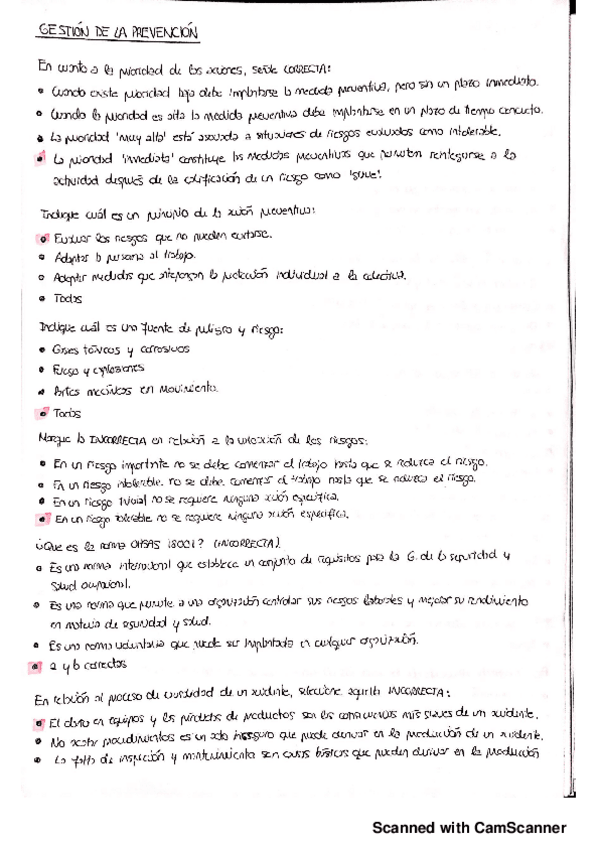 GESTIÓN DE LA PREVENCIÓN
En cuanto a la prioridad de las acciones, señale CORRECTA:
• Cuando existe prioridad baja debe implantarse la medida preventiva, pero sin un plazo inmediato.
• Cuando la prioridad es alta la medida preventiva debe implantarse en un plazo de tiempo concreto.
• La prioridad 'muy alta' está asociada a situaciones de riesgos evaluados como intolerable.
• La prioridad 'inmediata' constituye las medidas preventivas que permiten reintegrarse a la
actividad después de la calificación de un riesgo como 'grave'.
Indique cuál es un principio de la acción preventiva:
• Evaluar los riesgos que no pueden evitarse.
• Adaptar la persona al trabajo.
• Adoptar medidas que antepongan la protección individual a la colectiva.
• Todas
Indique cuál es una fuente de peligro y riesgo:
• Gases tóxicos y corrosivos
• Fuego y explosiones
• Partes mecánicas en movimiento.
• Todas
Marque la INCORRECTA en relación a la valoración de los riesgos:
• En un riesgo importante no se debe comenzar el trabajo hasta que se reduzca el riesgo.
• En un riesgo intolerable no se debe comenzar el trabajo hasta que se reduzca el riesgo.
• En un riesgo trivial no se requiere ninguna acción específica.
• En un riesgo tolerable no se requiere ninguna acción específica.
¿Que es la norma OHSAS 18001? (INCORRECTA)
• Es una norma internacional que establece un conjunto de requisitos para la G. de la seguridad y
salud ocupacional.
• Es una norma que permite a una organización controlar sus riesgos laborales y mejorar su rendimiento
en materia de seguridad y salud.
• Es una norma voluntaria que puede ser implantada en cualquier organización.
• a y b correctas
En relación al proceso de causalidad de un accidente, seleccione aquella INCORRECTA:
• El daño en equipos y las pérdidas de productos son las consecuencias más graves de un accidente.
• No acatar procedimientos es un acto inseguro que puede derivar en la producción de un accidente.
• La falta de inspección y mantenimiento son causas básicas que pueden derivar en la producción
Scanned with CamScanner